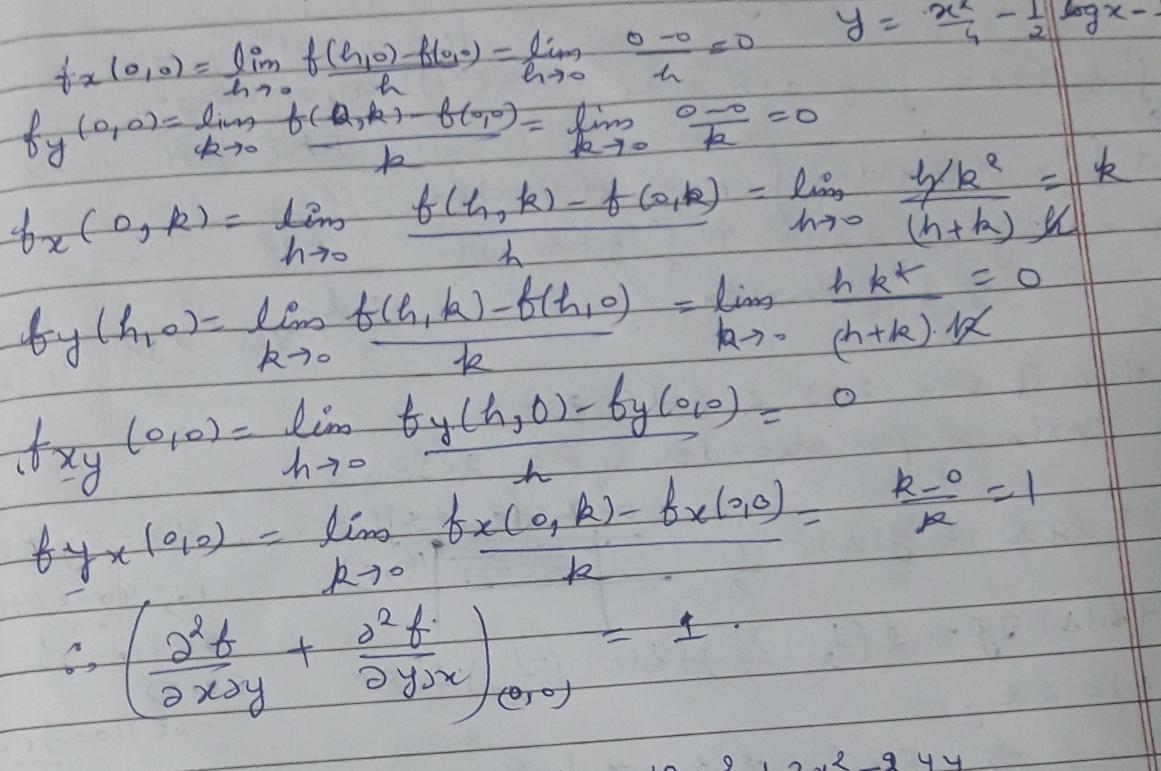 y = x²/4 - 1/2 log x -
fx(0,0) = lim h→0 f(h,0)-f(0,0)/h = lim h→0 0-0/h = 0
fy(0,0) = lim k→0 f(0,k)-f(0,0)/k = lim k→0 0-0/k = 0
fx(0,k) = lim h→0 f(h,k)-f(0,k)/h = lim h→0 hk²/(h+k).h = k
fy(h,0) = lim k→0 f(h,k)-f(h,0)/k = lim k→0 hk²/(h+k).k = 0
fxy(0,0) = lim h→0 fy(h,0)-fy(0,0)/h = 0
fyx(0,0) = lim k→0 fx(0,k)-fx(0,0)/k = k-0/k = 1
∴ (∂²f/∂x∂y + ∂²f/∂y∂x)(0,0) = 1.